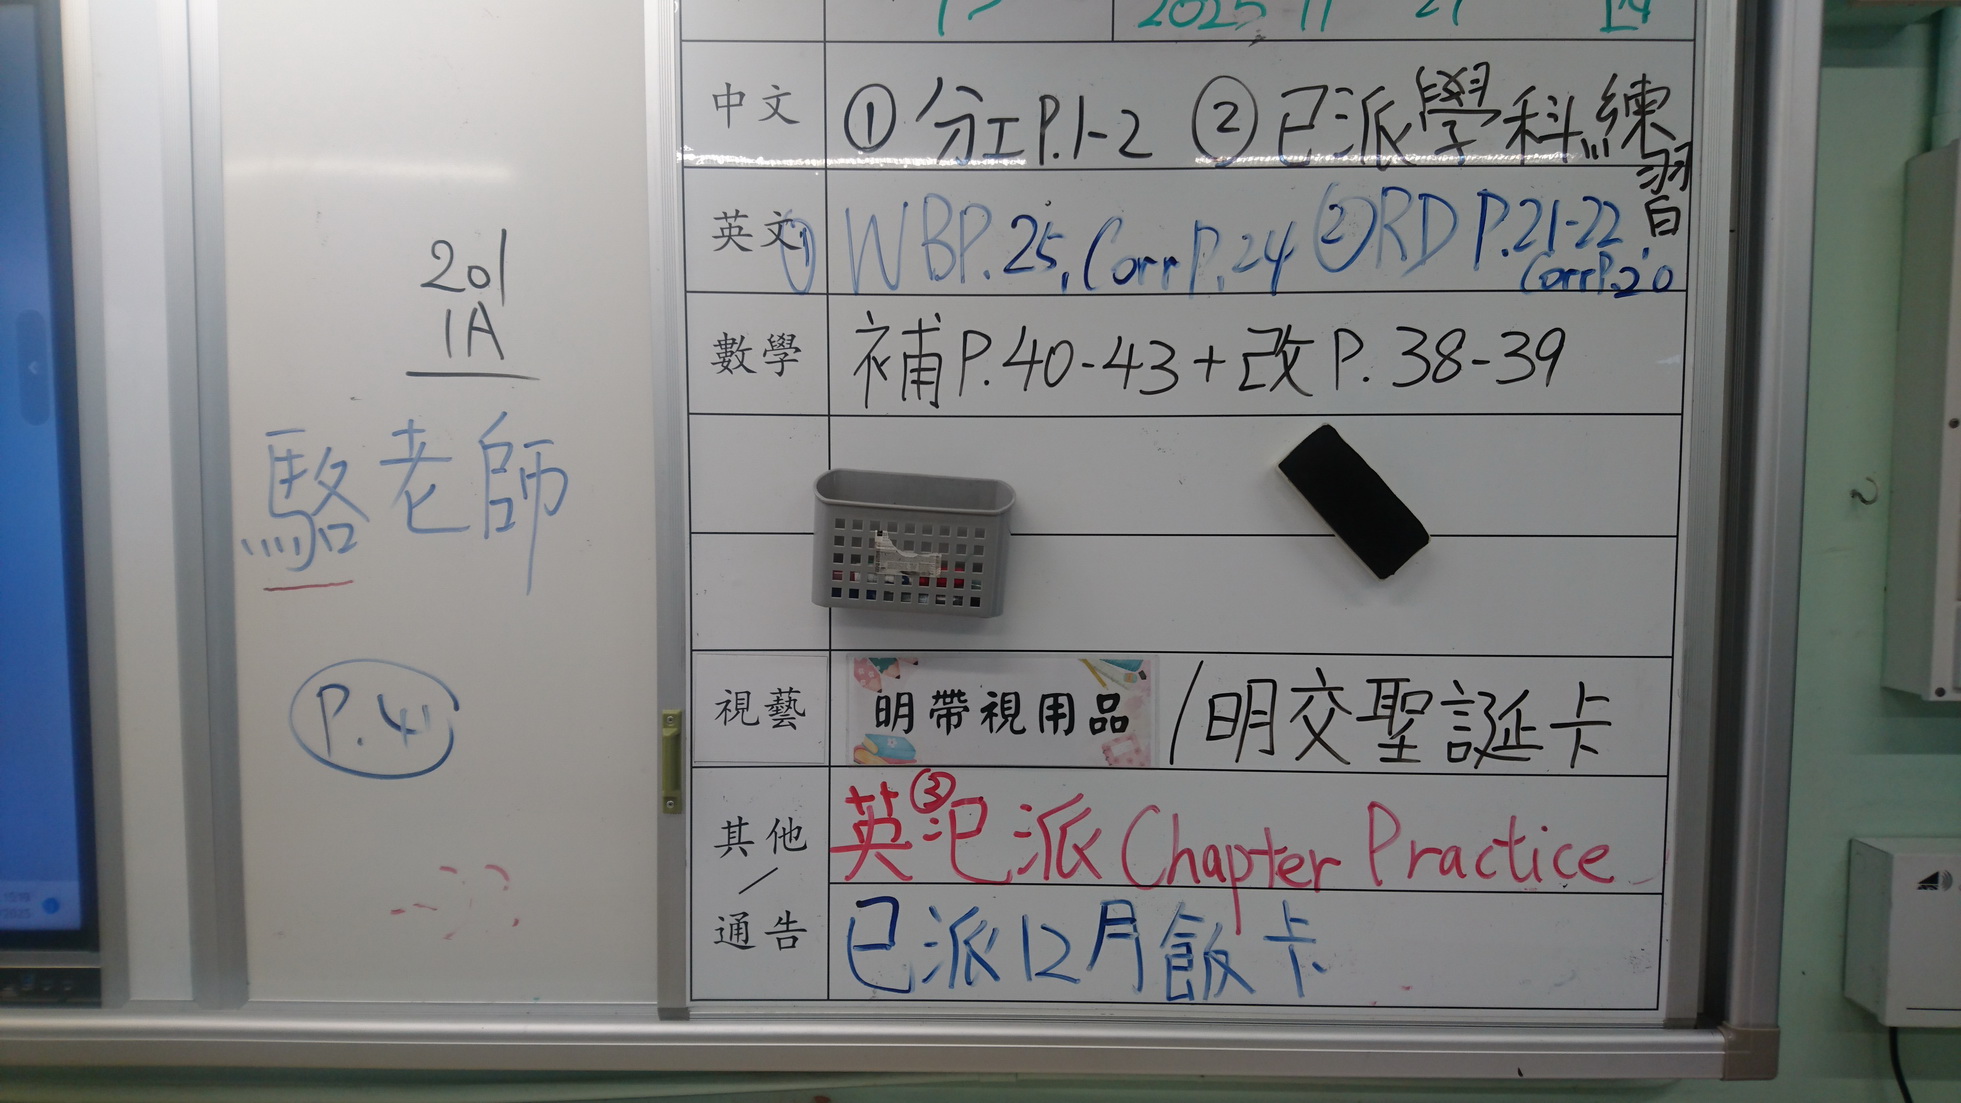 201
1A
駱老師
P.41
2025 11 27 四
中文 ① 分工P.1-2 ② 已派學科練習
英文 ① WBP.25, Corr P.24 ② RD P.21-22, Corr P.20
數學 補P.40-43+改P.38-39
視藝 明帶視用品/明交聖誕卡
其他/通告 英③已派Chapter Practice
已派12月飯卡